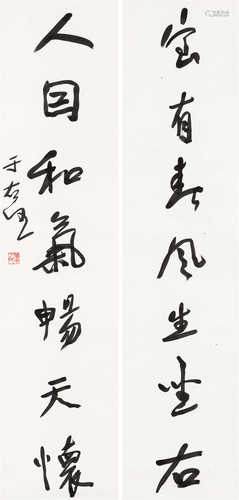 室有春風生坐右
人因和氣暢天懷
于右任